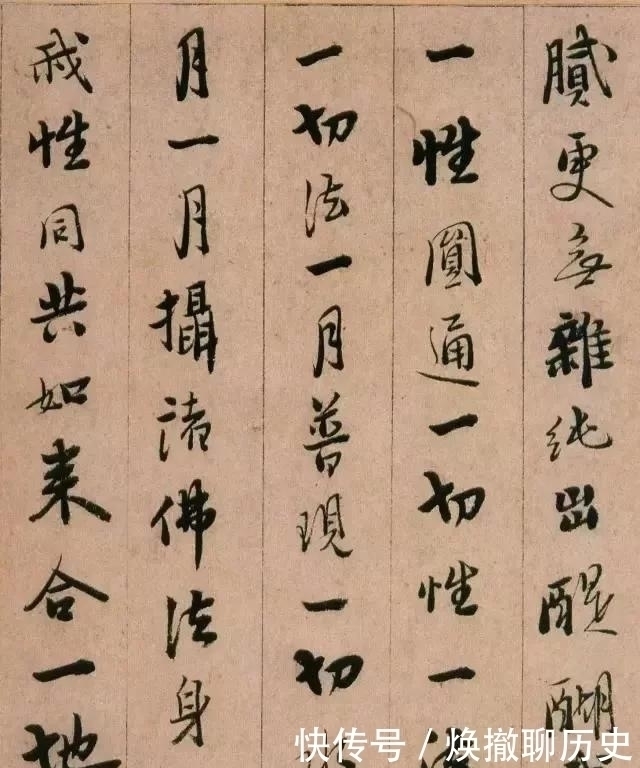 膩更無雜純出醍醐
一性圓通一切性一
一切法一月普現一切
月一月攝諸佛法身
我性同共如來合一地
快传号 / 焕撤聊历史